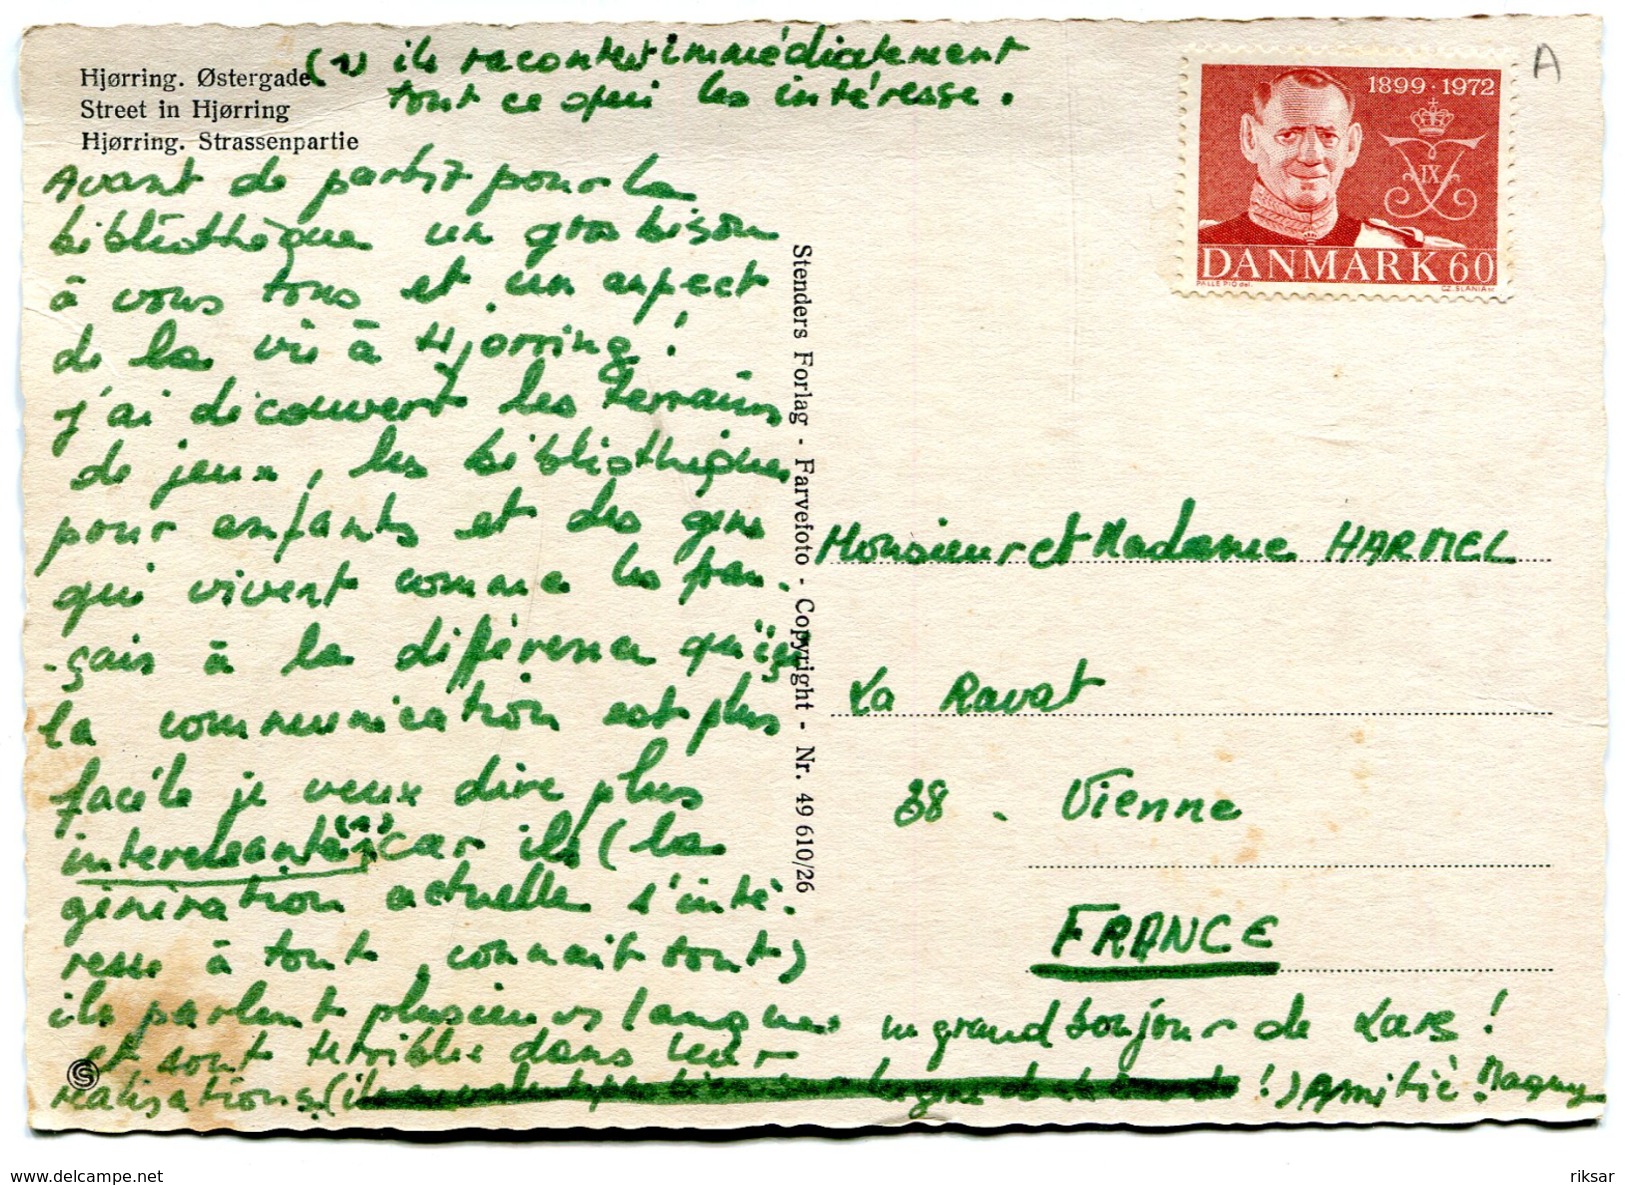 Hjørring. Østergade
Street in Hjørring
Hjørring. Strassenpartie
(1) ils racontent immédiatement
tout ce qui les intéresse.
Avant de partir pour la
bibliothèque un gros bison
à vous tous et un aspect
de la vie à Hjorring !
J'ai découvert les terrains
de jeux, les bibliothèques
pour enfants et des gens
qui vivent comme les fran-
-çais à la différence qu'ici
la communication est plus
facile je veux dire plus
interessante (1) car ils (la
génération actuelle s'inté-
resse à tout, connait tout)
ils parlent plusieurs langues
et sont terribles dans leur
réalisations (ils
!) Amitié. Maguy
un grand bonjour de Lars !
Stenders Forlag - Farvefoto - Copyright - Nr. 49 610/26
S
1899 · 1972
IX
DANMARK 60
PALLE PIO del.
CZ. SLANIA sc.
A
Monsieur et Madame HARMEL
La Ravat
38 . Vienne
FRANCE
delcampe.net
riksar